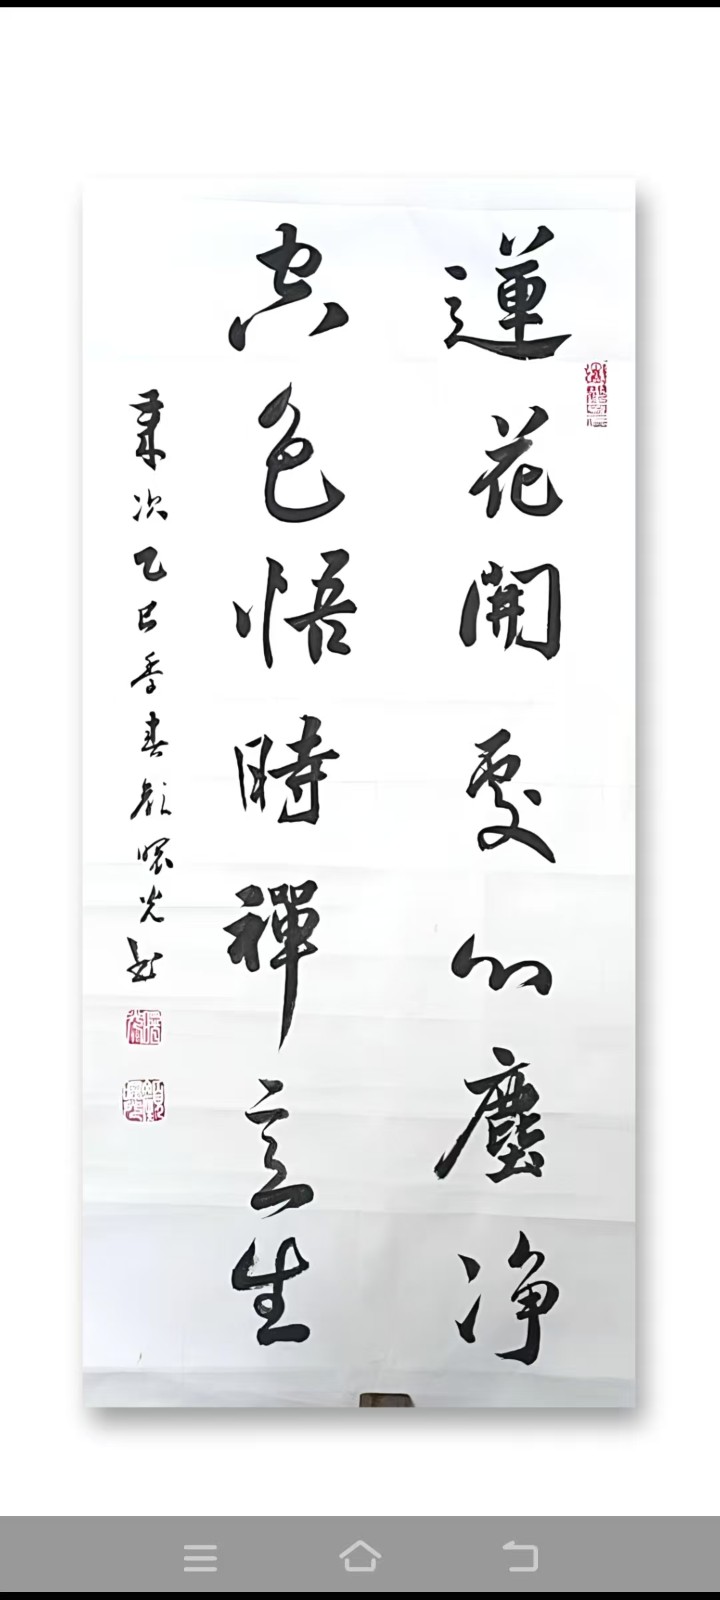 蓮花開處心塵净
空色悟時禪意生
歲次乙巳季春顏曙光書